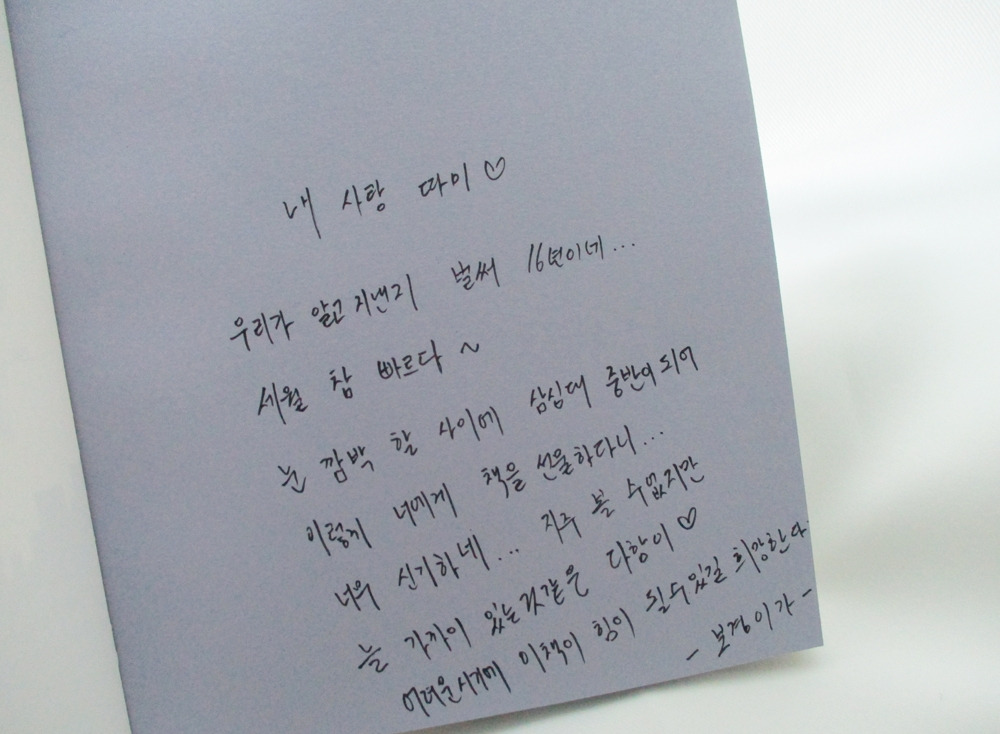 내 사랑 따이 ♡
우리가 알고 지낸지 벌써 16년이네...
세월 참 빠르다 ~
눈 깜박 할 사이에 삼십대 중반이 되어
이렇게 너에게 책을 선물하다니...
너무 신기하네... 자주 볼 수 없지만
늘 가까이 있는것같은 다항이 ♡
어려운시기에 이책이 힘이 될수있길 희망한다
- 보경이가 -